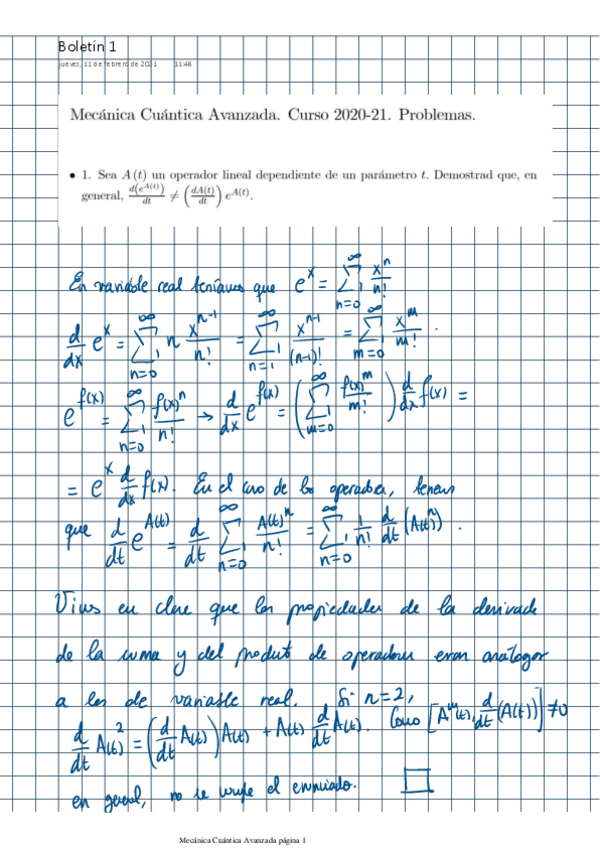 Boletín 1
jueves, 11 de febrero de 2021 11:46
Mecánica Cuántica Avanzada. Curso 2020-21. Problemas.
• 1. Sea A (t) un operador lineal dependiente de un parámetro t. Demostrad que, en
general, d(e^{A(t)})/dt ≠ (dA(t)/dt) e^{A(t)}.
En variable real teníamos que e^x = ∑_{n=0}^∞ x^n/n!
d/dx e^x = ∑_{n=0}^∞ n x^{n-1}/n! = ∑_{n=1}^∞ x^{n-1}/(n-1)! = ∑_{m=0}^∞ x^m/m! .
e^{f(x)} = ∑_{n=0}^∞ f(x)^n/n! → d/dx e^{f(x)} = (∑_{m=0}^∞ f(x)^m/m!) d/dx f(x) =
= e^x d/dx f(x). En el caso de los operadores, tenemos
que d/dt e^{A(t)} = d/dt ∑_{n=0}^∞ A(t)^n/n! = ∑_{n=0}^∞ 1/n! d/dt (A(t)^n) .
Vimos en clase que las propiedades de la derivada
de la suma y del producto de operadores eran análogas
a las de variable real. Si n=2,
d/dt A(t)^2 = (d/dt A(t)) A(t) + A(t) d/dt A(t). Como [A^m(t), d/dt (A(t))] ≠ 0
en general, no se cumple el enunciado. □
Mecánica Cuántica Avanzada página 1